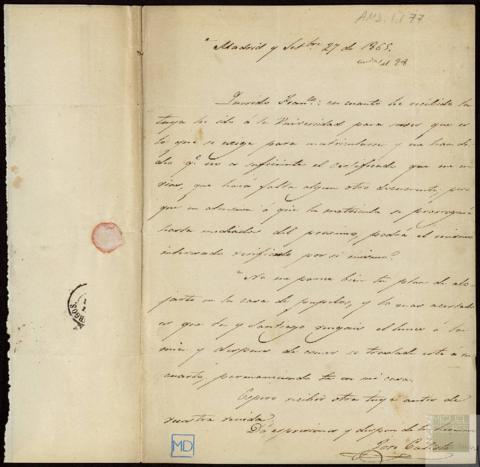 AMD, 1, 1 77
Madrid y Setbre 27 de 1865.
Querido Franco: en cuanto he recibido la
tuya he ido á la Universidad para saber que es
lo que se exige para matricularse y me han di-
cho qe no es suficiente el certificado que me en-
vias, que hacia falta algun otro documento, pero
que en atencion á que la matricula se prorrogará
hasta mediados del proximo, podrá el mismo
interesado verificarlo por si mismo.
No me parece bien tu plan de alo-
jarte en la casa de pupilos, y lo mas acertado
es que tu y Santiago vengais el lunes á la
mia y despues de comer se traslade este a su
cuarto, permaneciendo tu en mi casa.
Espero recibir otra tuya antes de
vuestra venida.
Dá espresiones y dispon de tu
José
MD